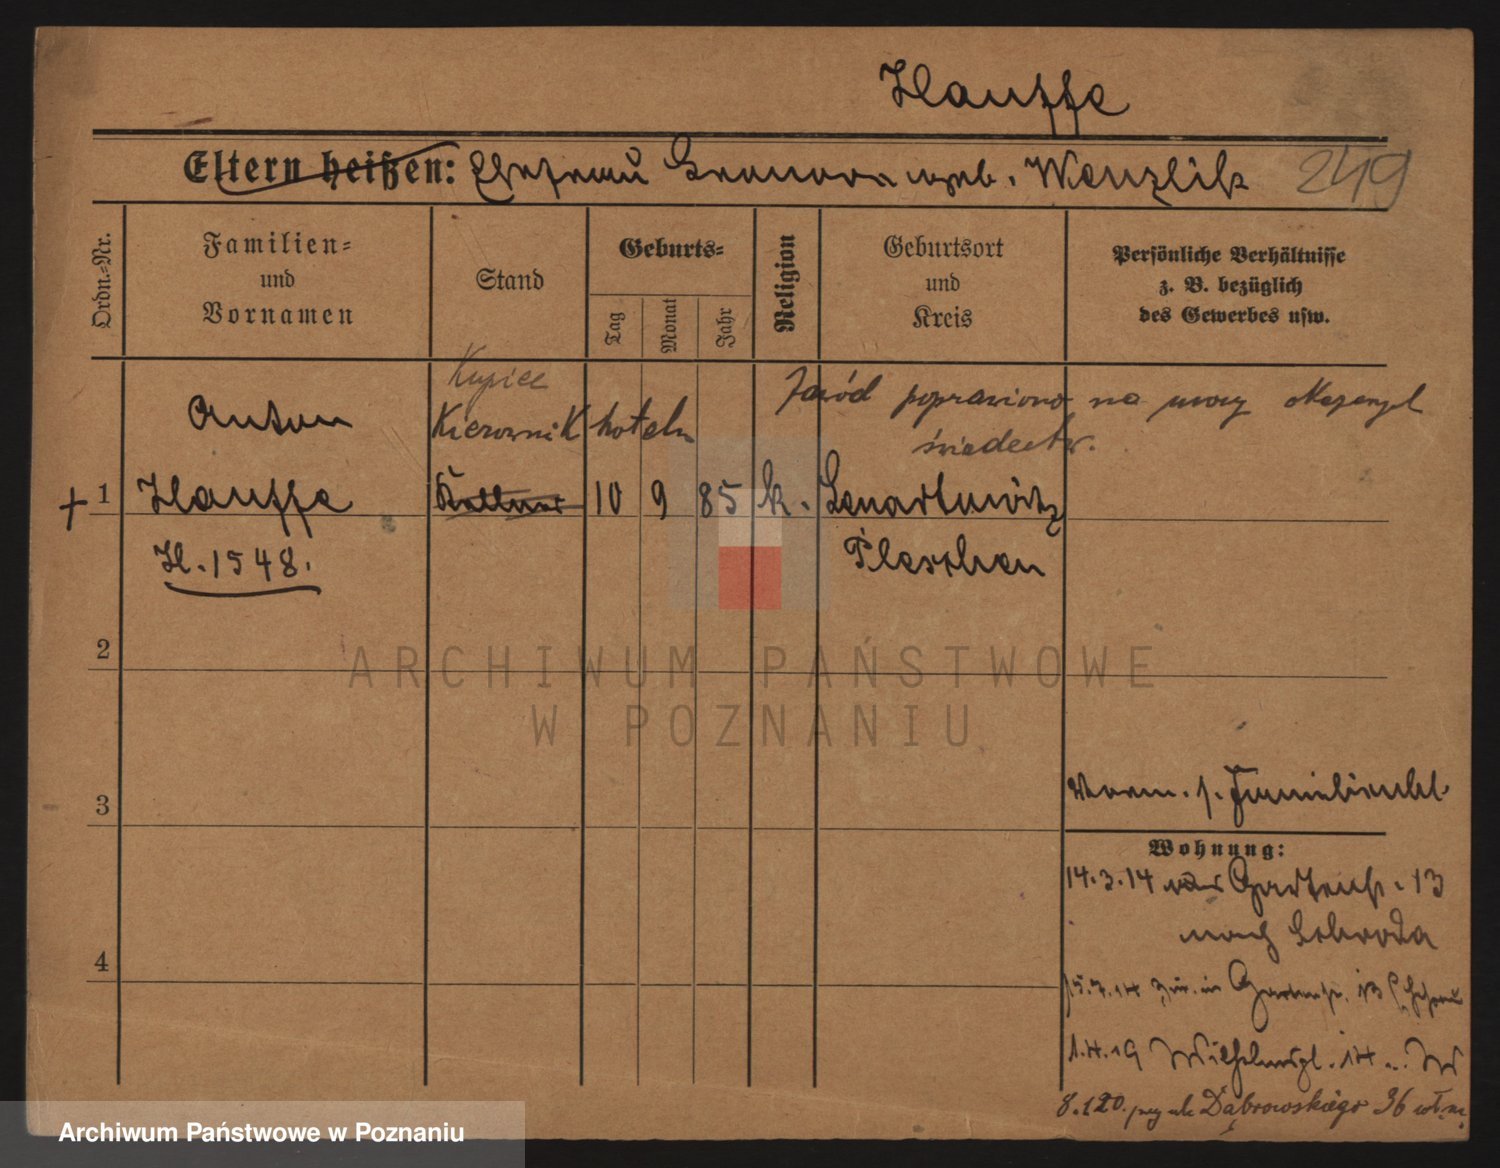 Hauffe
Eltern heißen: Ehefrau Leonora geb. Wenzlik 249
Ordn.-Nr.
Familien-
und
Vornamen
Stand
Geburts-
Tag
Monat
Jahr
Religion
Geburtsort
und
Kreis
Persönliche Verhältnisse
z. B. bezüglich
des Gewerbes usw.
Kupiec
Anton Kierownik hotelu
Zawód poprawiono na mocy okazanych
świadectw.
+ 1 Hauffe Kellner 10 9 85 k. Lenartowitz
H. 1548. Pleschen
2
ARCHIWUM PAŃSTWOWE
W POZNANIU
3
Verm. s. Familienbl.
Wohnung:
14.3.14 Gartenstr. 13
nach Schroda
4
zur. in Gartenstr. 13
1.4.19 Wilhelmspl. 14
8.1.20. przy ul. Dąbrowskiego 36
Archiwum Państwowe w Poznaniu